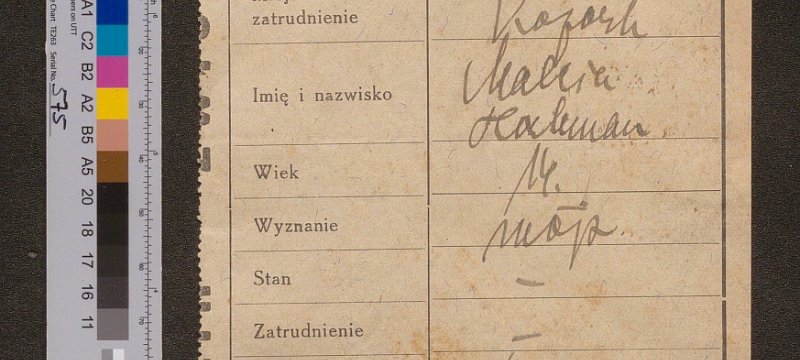 Chart TE263 Serial No. 575
A1
C2
B2
A2
B5
A5
20
18
17
16
11
zatrudnienie
Imię i nazwisko Malcia
Halman
Wiek 14.
Wyznanie mojż.
Stan —
Zatrudnienie —